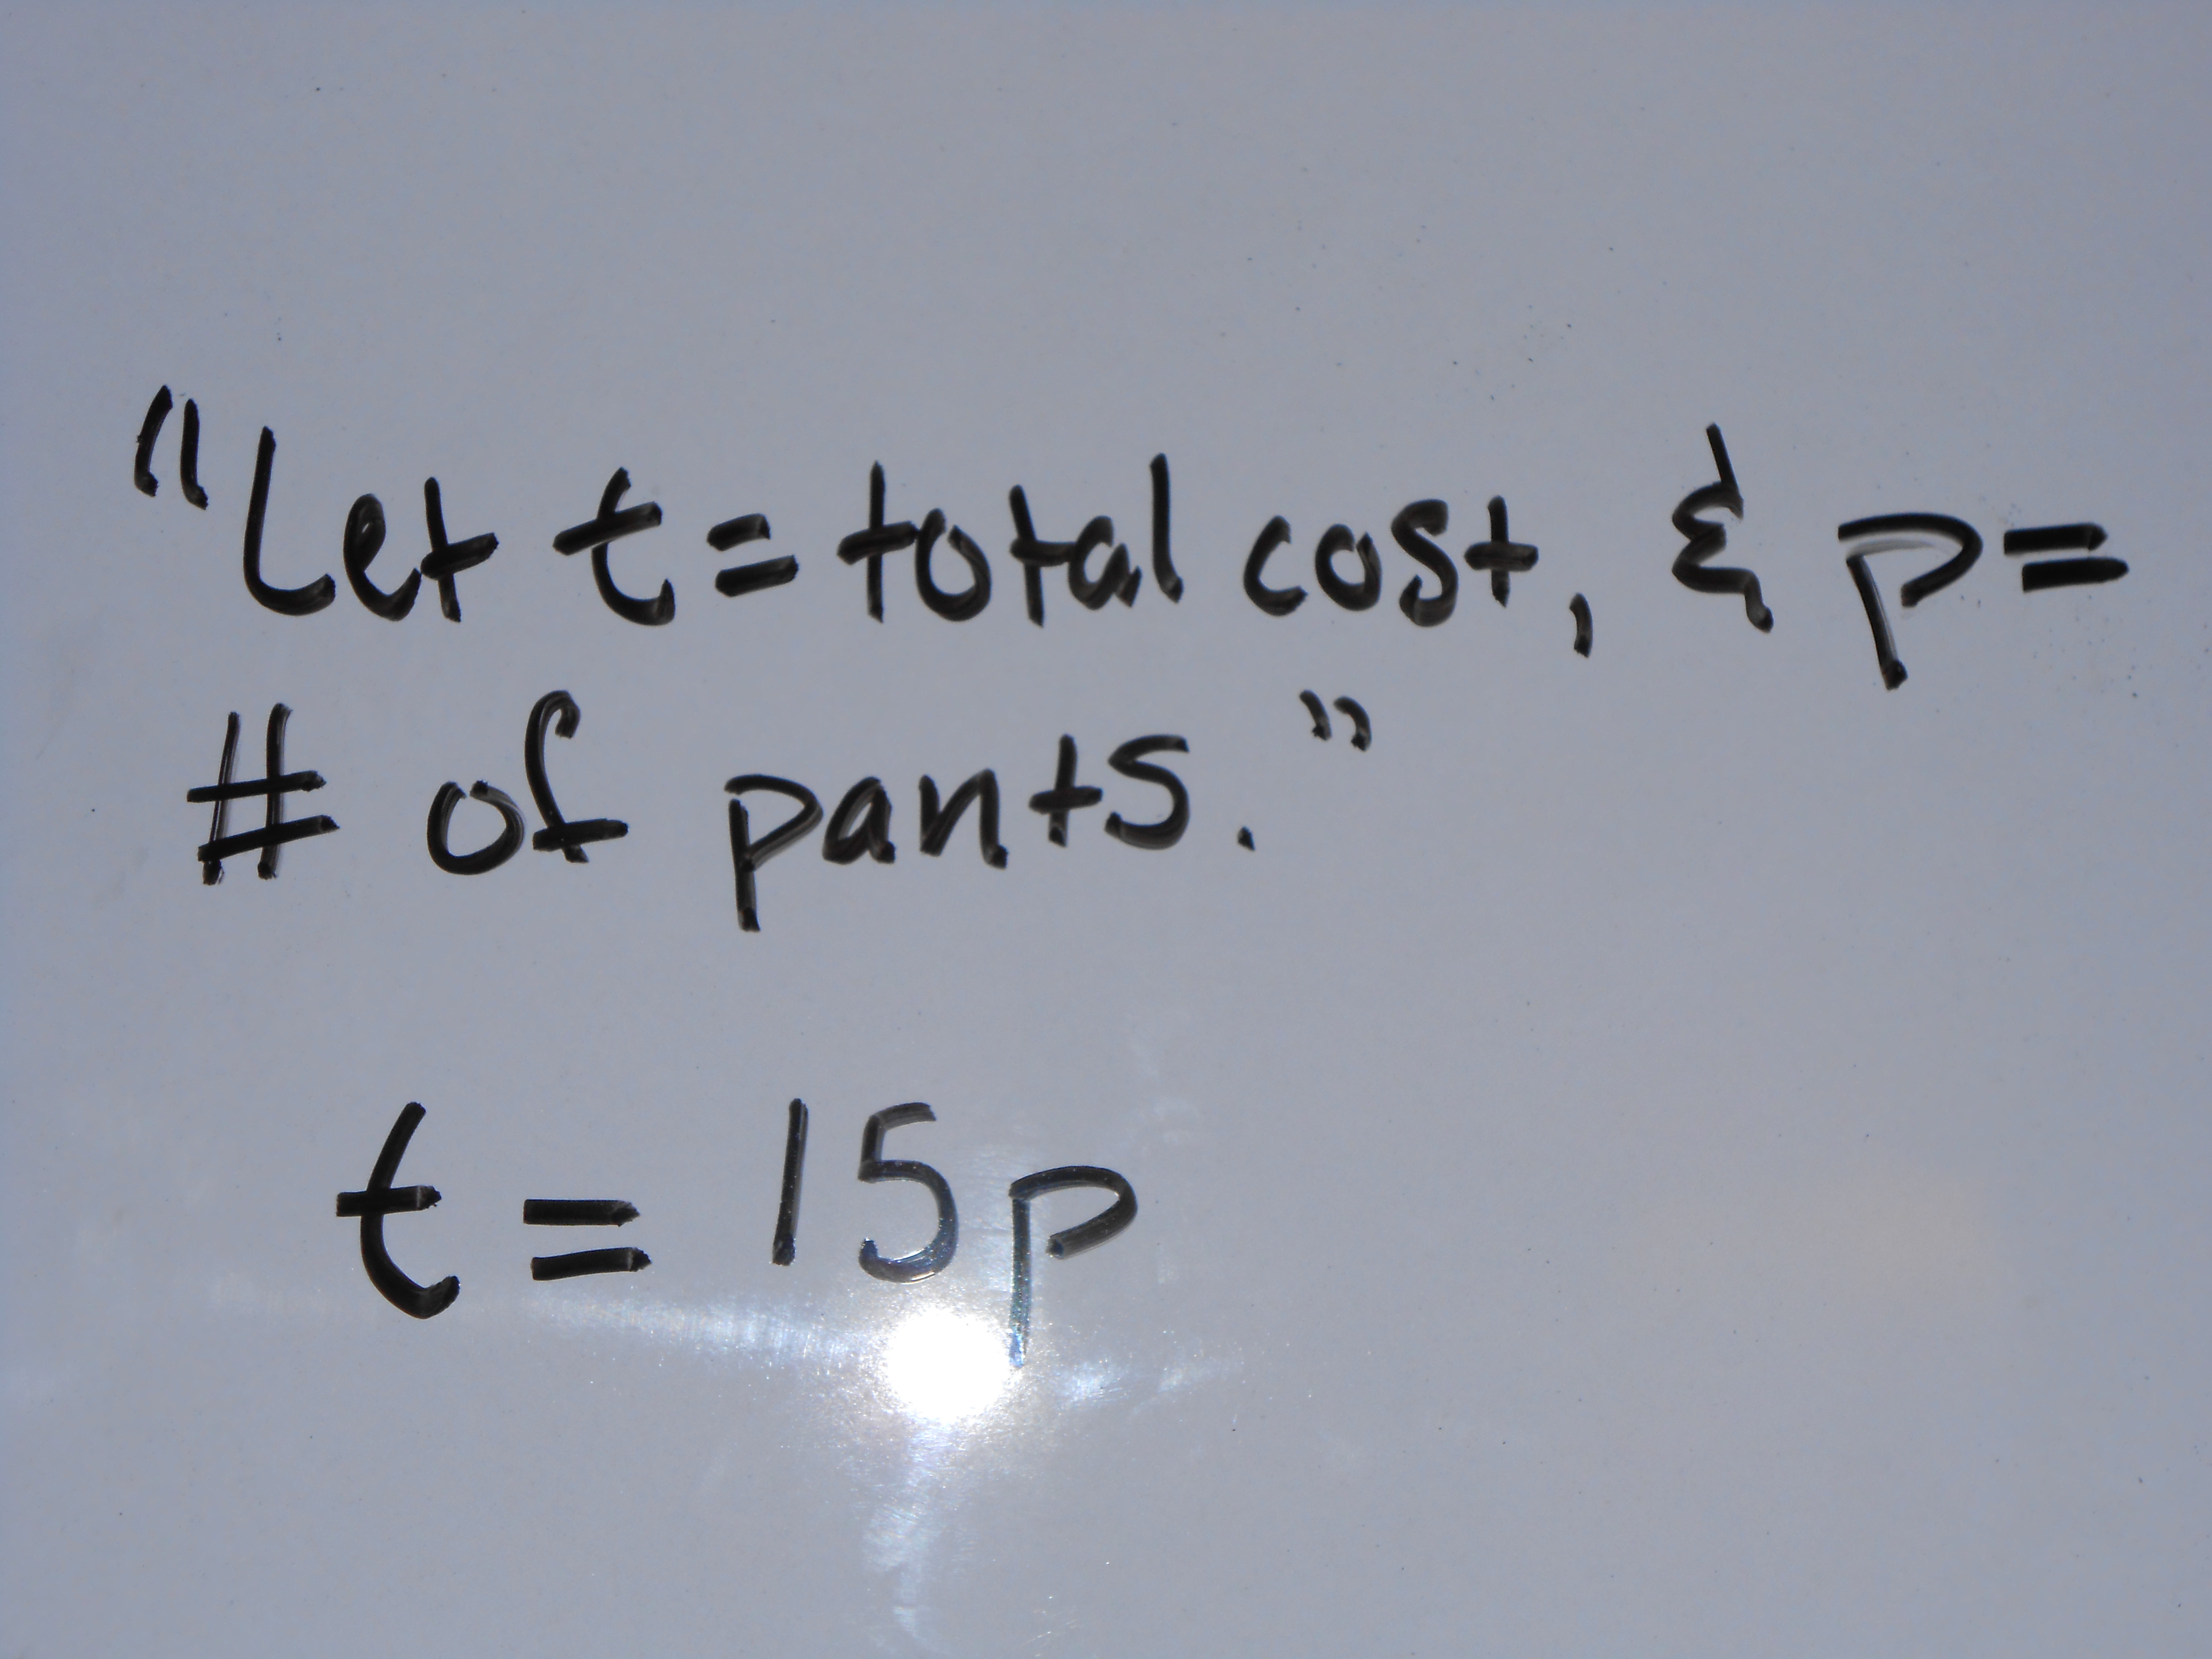 "Let t = total cost, & p =
# of pants."
t = 15p